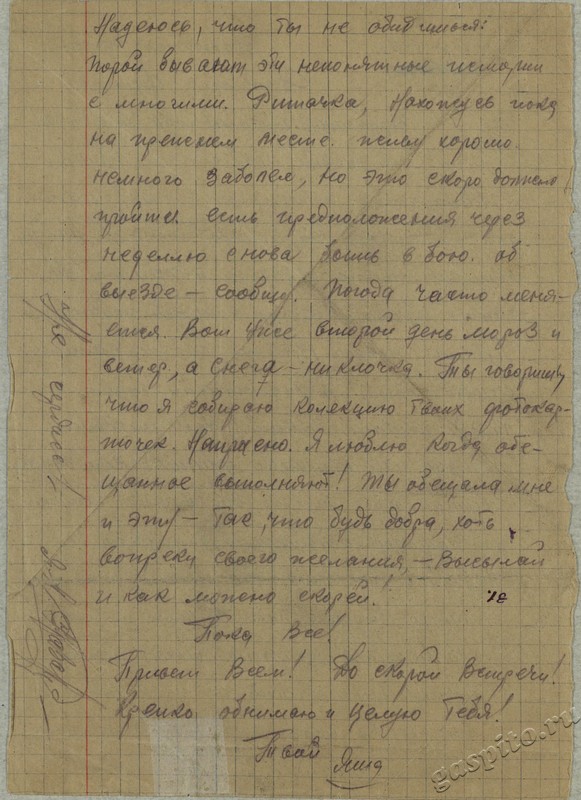 Надеюсь, что ты не обидишься:
порой бывают эти непонятные истории
с многими. Риточка, нахожусь пока
на прежнем месте. живу хорошо.
немного заболел, но это скоро должно
пройти. есть предположения через
неделлю снова быть в бою. об
выезде – сообщу. Погода часто меня-
ется. Вот уже второй день мороз и
ветер, а снега – ни клочка. Ты говоришь,
что я собираю колекцию таких фотокар-
точек. Напрасно. Я люблю когда обе-
щанное выполняют! Ты обещала мне
и эту – так, что будь добра, хоть
вопреки своего желания, – высылай
и как можно скорей!
Пока все!
Привет всем! До скорой встречи!
Крепко обнимаю и целую тебя!
Твой Яша
Не сердись!
gaspito.ru